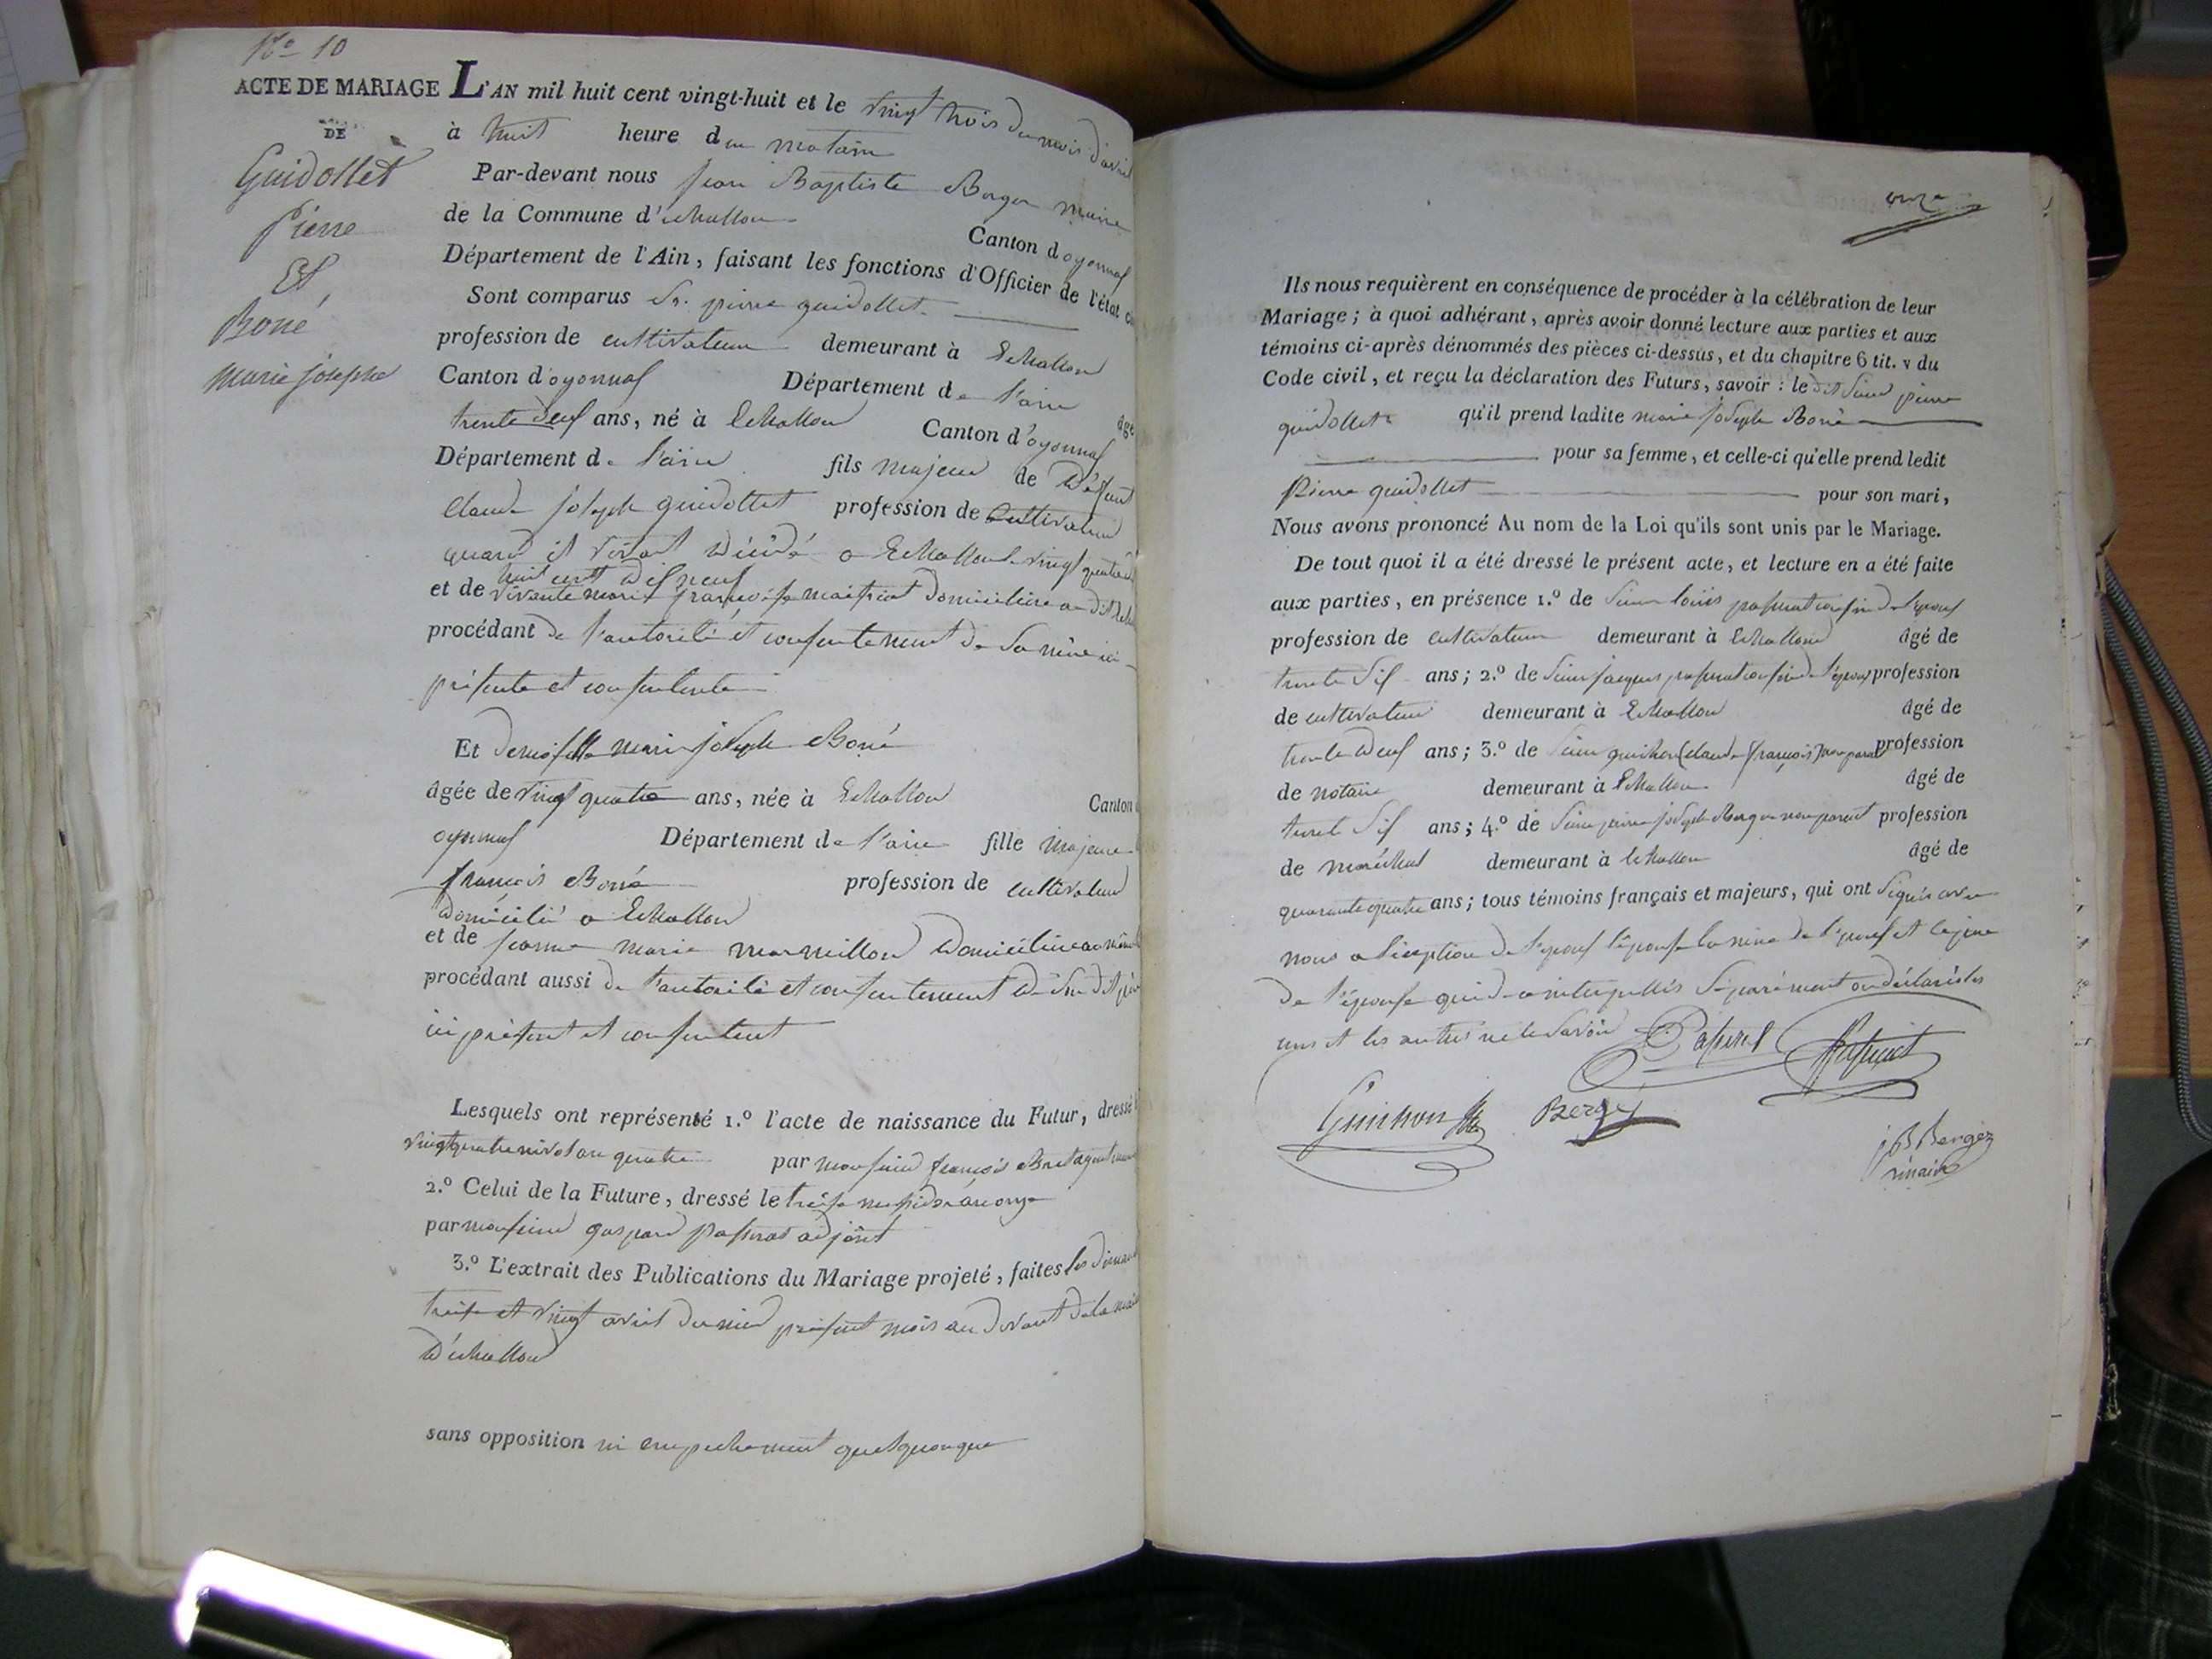 No 10
ACTE DE MARIAGE
DE
Guidollet
Pierre
Et
Boné
marie josephe
L'AN mil huit cent vingt-huit et le vingt trois du mois d'avril
à huit heure du matin
Par-devant nous jean Baptiste Berger maire
de la Commune d'echallon Canton d'oyonnax
Département de l'Ain, faisant les fonctions d'Officier de l'état
Sont comparus Sr. pierre guidollet
profession de cultivateur demeurant à Echallon
Canton d'oyonnax Département de l'ain âgé
trente deux ans, né à Echallon Canton d'oyonnax
Département de l'ain fils majeur de défunt
Claude joseph guidollet profession de cultivateur
quand il vivait décédé a Echallon le vingt quatre
huit cent dix neuf
et de vivante marie françoise domiciliée au dit
procédant de l'autorité et consentement de sa mère ici
présente et consentente
Et demoiselle marie joseph Boné
âgée de vingt quatre ans, née à Echallon Canton
oyonnax Département de l'ain fille majeure
françois Boné profession de cultivateur
domicilié a Echallon
et de jeanne marie marmillon domiciliée au même
procédant aussi de l'autorité et consentement de son dit père
ici présent et consentent
Lesquels ont représenté 1.º l'acte de naissance du Futur, dressé
vingt quatre nivose an quatre par monsieur françois
2.º Celui de la Future, dressé le treise messidor an onze
par monsieur gaspard passerat adjoint
3.º L'extrait des Publications du Mariage projeté, faites les
treise et vingt avril présent mois au devant de la
d'echallon
sans opposition ni empechement quelquonque
onze
Ils nous requièrent en conséquence de procéder à la célébration de leur
Mariage; à quoi adhérant, après avoir donné lecture aux parties et aux
témoins ci-après dénommés des pièces ci-dessus, et du chapitre 6 tit. v du
Code civil, et reçu la déclaration des Futurs, savoir: le dit Sieur pierre
guidollet qu'il prend ladite marie joseph Boné
pour sa femme, et celle-ci qu'elle prend ledit
Pierre guidollet pour son mari,
Nous avons prononcé Au nom de la Loi qu'ils sont unis par le Mariage.
De tout quoi il a été dressé le présent acte, et lecture en a été faite
aux parties, en présence 1.º de Sieur louis passerat cousin de l'epoux
profession de cultivateur demeurant à Echallon âgé de
trente six ans; 2.º de Sieur jacques passerat cousin de l'époux profession
de cultivateur demeurant à Echallon âgé de
trente deux ans; 3.º de Sieur guichon (claude françois) non parent profession
de notaire demeurant à Echallon âgé de
trente six ans; 4.º de Sieur pierre joseph Berger non parent profession
de maréchal demeurant à Echallon âgé de
quarante quatre ans; tous témoins français et majeurs, qui ont signés avec
nous a l'exception de l'epoux l'épouse la mère de l'époux et le père
de l'épouse qui de ce interpellés séparément on déclaré les
uns et les autres ne le savoir
Passerat
Guichon
Berger
j B Berger
maire